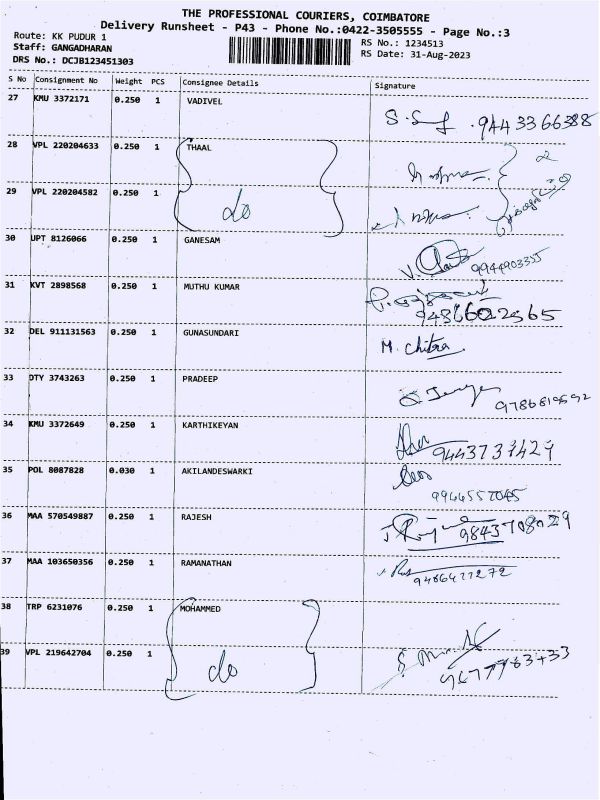 THE PROFESSIONAL COURIERS, COIMBATORE
Delivery Runsheet - P43 - Phone No.:0422-3505555 - Page No.:3
Route: KK PUDUR 1
RS No.: 1234513
Staff: GANGADHARAN
RS Date: 31-Aug-2023
DRS No.: DCJB123451303
S No Consignment No Weight PCS Consignee Details Signature
27 KMU 3372171 0.250 1 VADIVEL 9443366388
28 VPL 220204633 0.250 1 THAAL
29 VPL 220204582 0.250 1 do
30 UPT 8126066 0.250 1 GANESAM 9944903355
31 KVT 2898568 0.250 1 MUTHU KUMAR
32 DEL 911131563 0.250 1 GUNASUNDARI M. Chitra
33 DTY 3743263 0.250 1 PRADEEP
34 KMU 3372649 0.250 1 KARTHIKEYAN
35 POL 8087828 0.030 1 AKILANDESWARKI
36 MAA 570549887 0.250 1 RAJESH 9843708029
37 MAA 103650356 0.250 1 RAMANATHAN
38 TRP 6231076 0.250 1 MOHAMMED
39 VPL 219642704 0.250 1 do